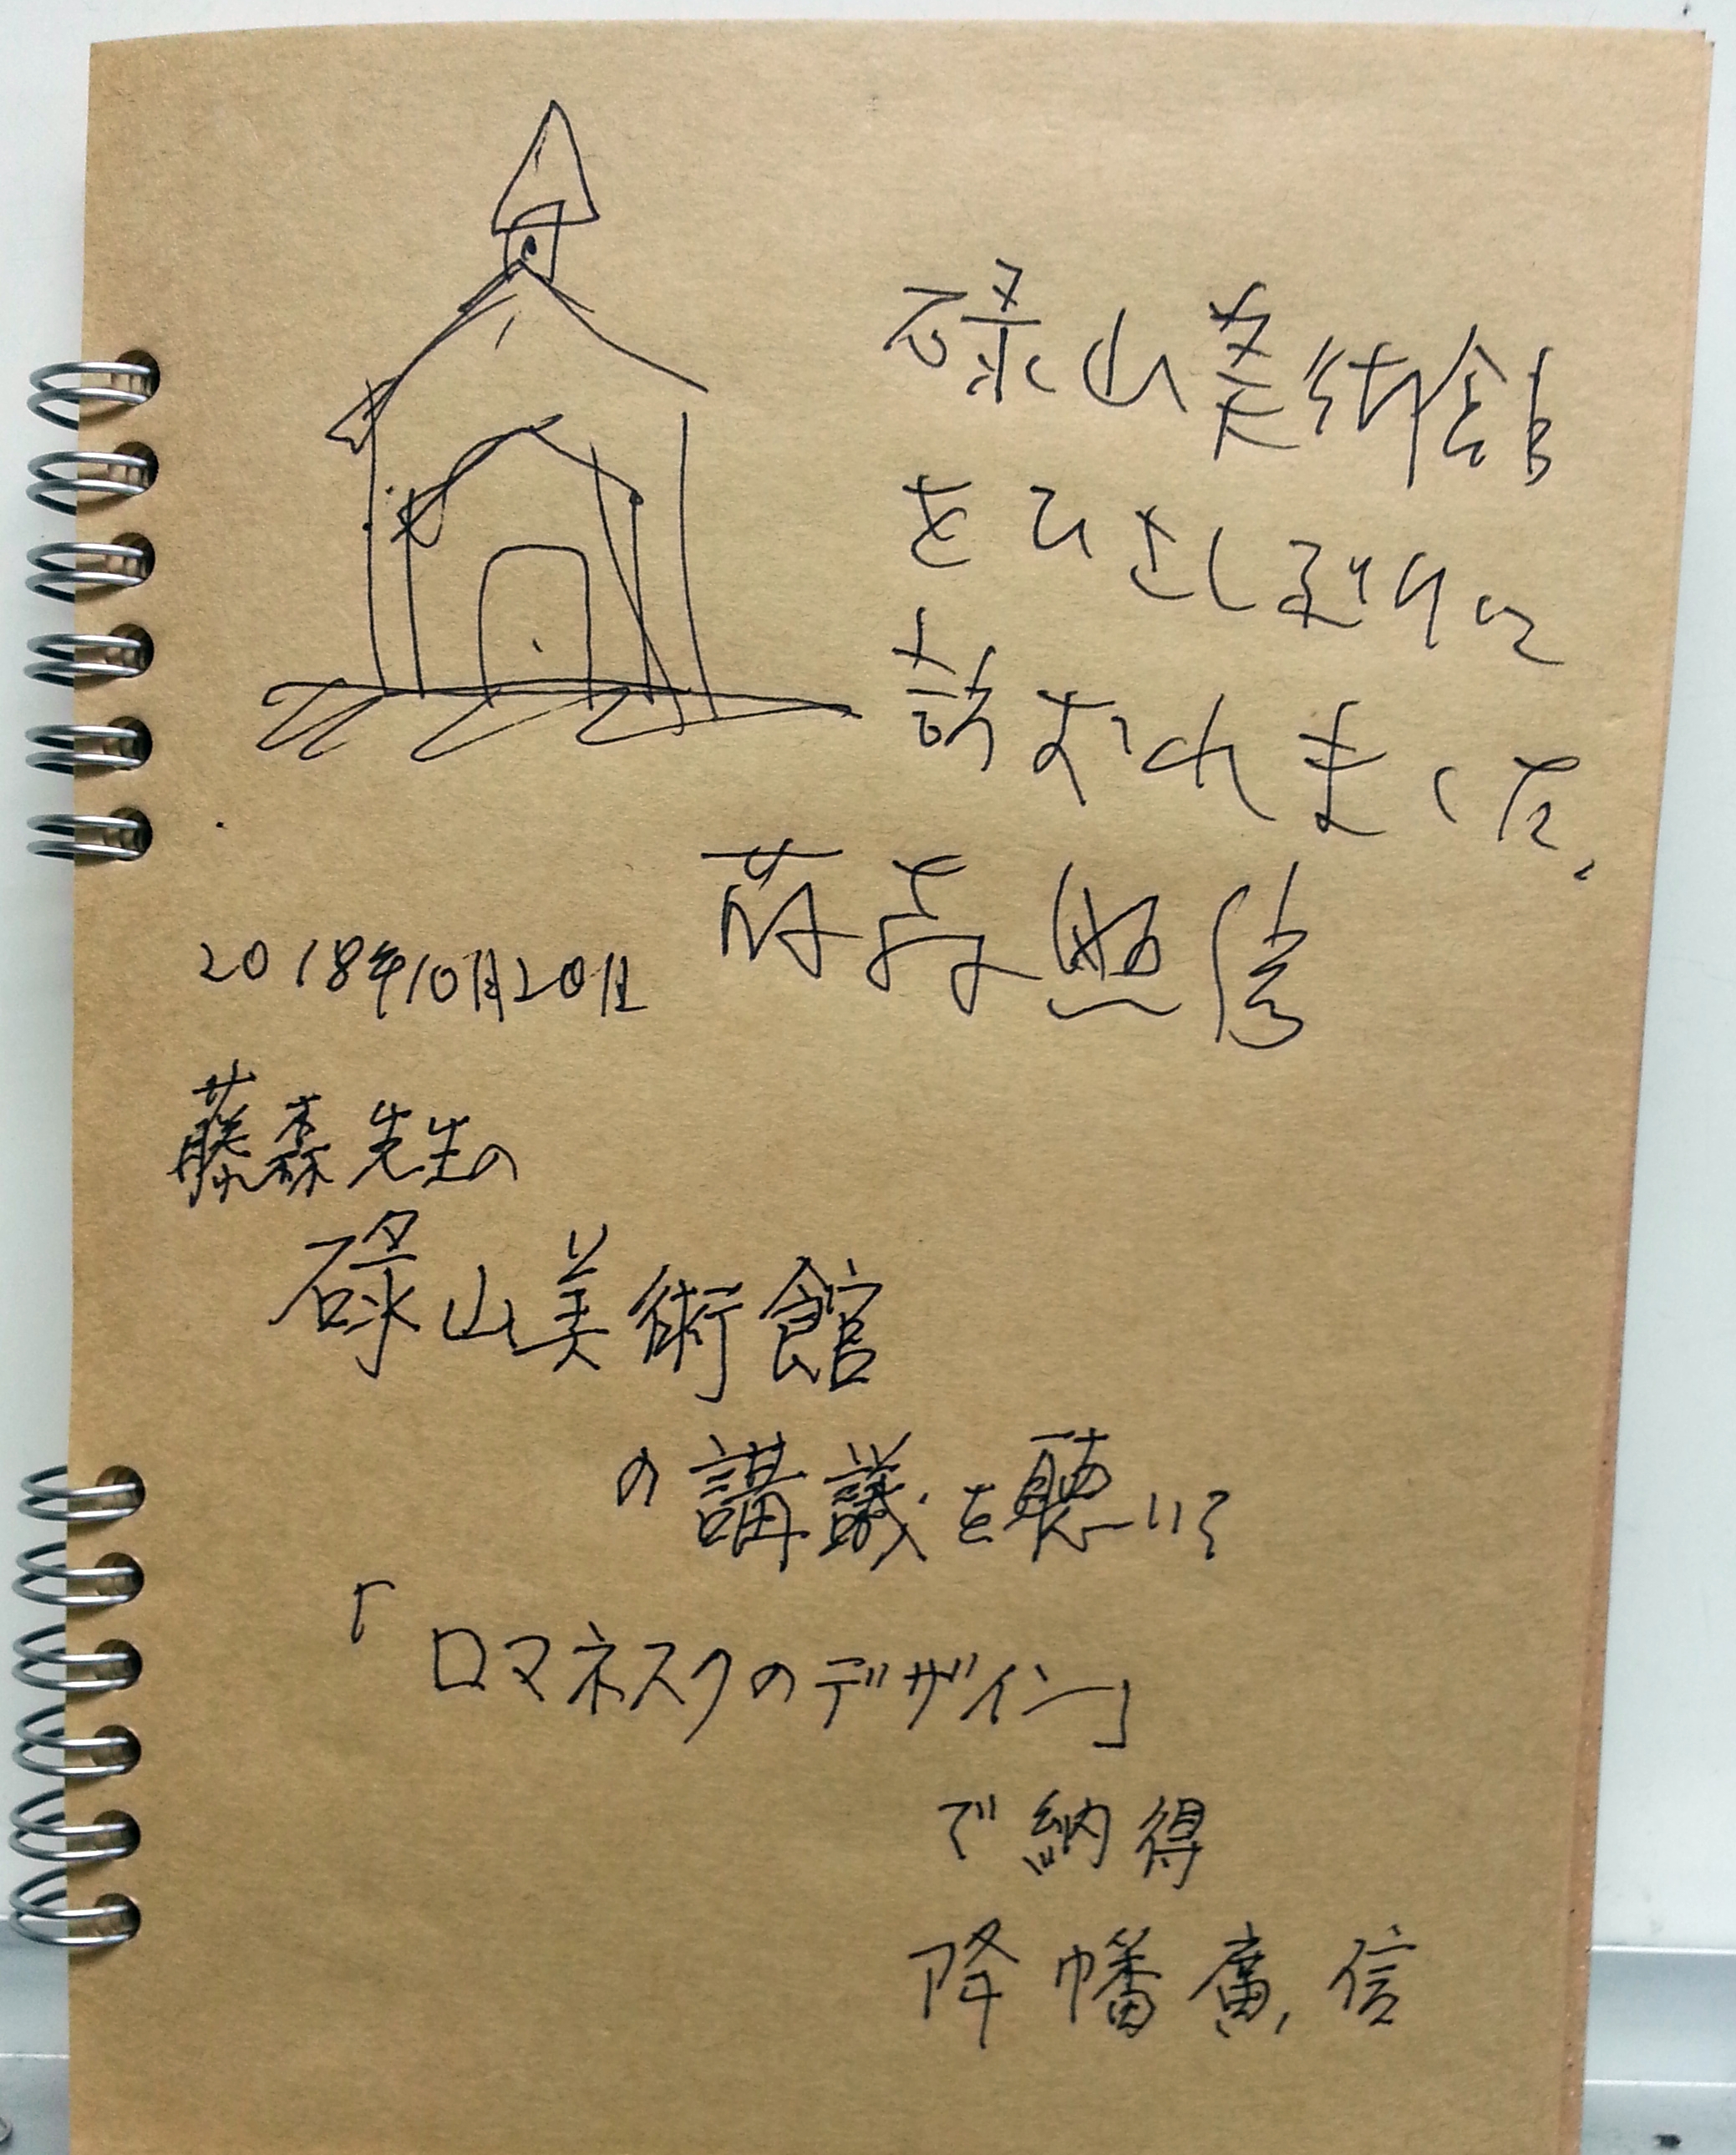 碌山美術館
をひさしぶりに
訪ずれました。
藤森照信
2018年10月20日
藤森先生の
碌山美術館
の講議を聴いて
「ロマネスクのデザイン」
で納得
降幡廣信